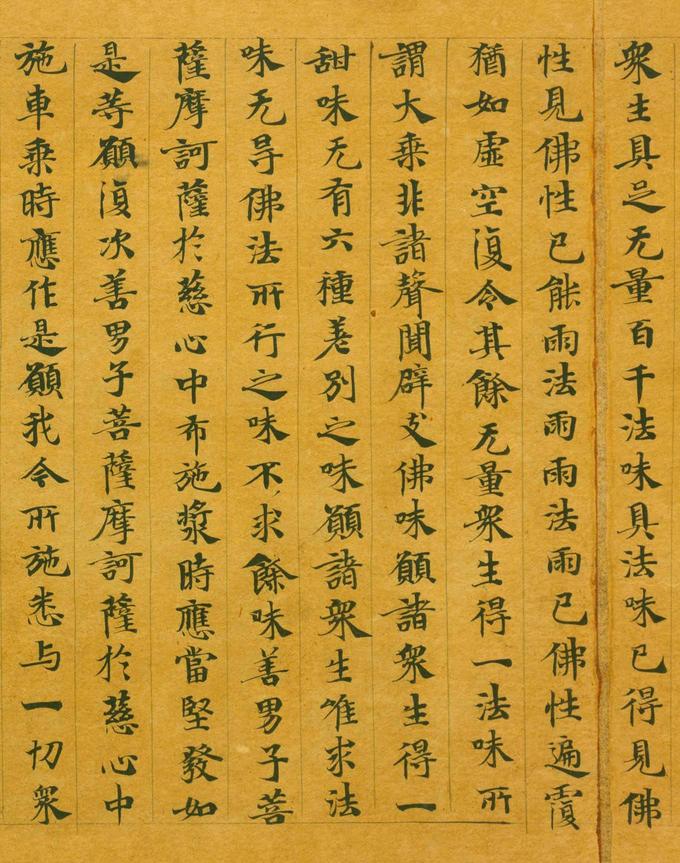 衆生具足无量百千法味具法味已得見佛
性見佛性已能雨法雨雨法雨已佛性遍霞
猶如虛空復令其餘无量衆生得一法味所
謂大乗非諸聲聞辟支佛味願諸衆生得一
甜味无有六種差別之味願諸衆生唯求法
味无㝵佛法所行之味不求餘味善男子菩
薩摩訶薩於慈心中布施漿時應當堅發如
是等願復次善男子菩薩摩訶薩於慈心中
施車乗時應作是願我今所施悉与一切衆